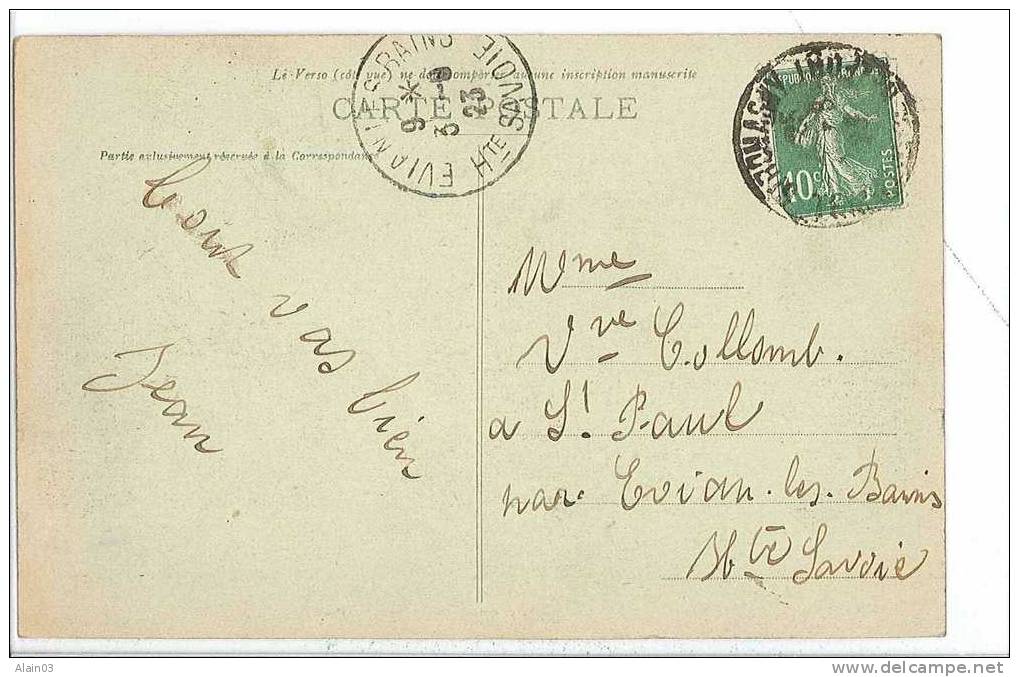 Le Verso (côté vue) ne doit comporter aucune inscription manuscrite
CARTE POSTALE
Partie exlusivement réservée à la Correspondance
EVIAN-LES-BAINS
9 *
3 - 8
23
HTE SAVOIE
REPUBLIQUE FRANÇAISE
10c
POSTES
tout vas bien
Jean
Mme
Vve Collomb.
a St Paul
par Evian-les-Bains
Hte Savoie
Alain03
delcampe.net